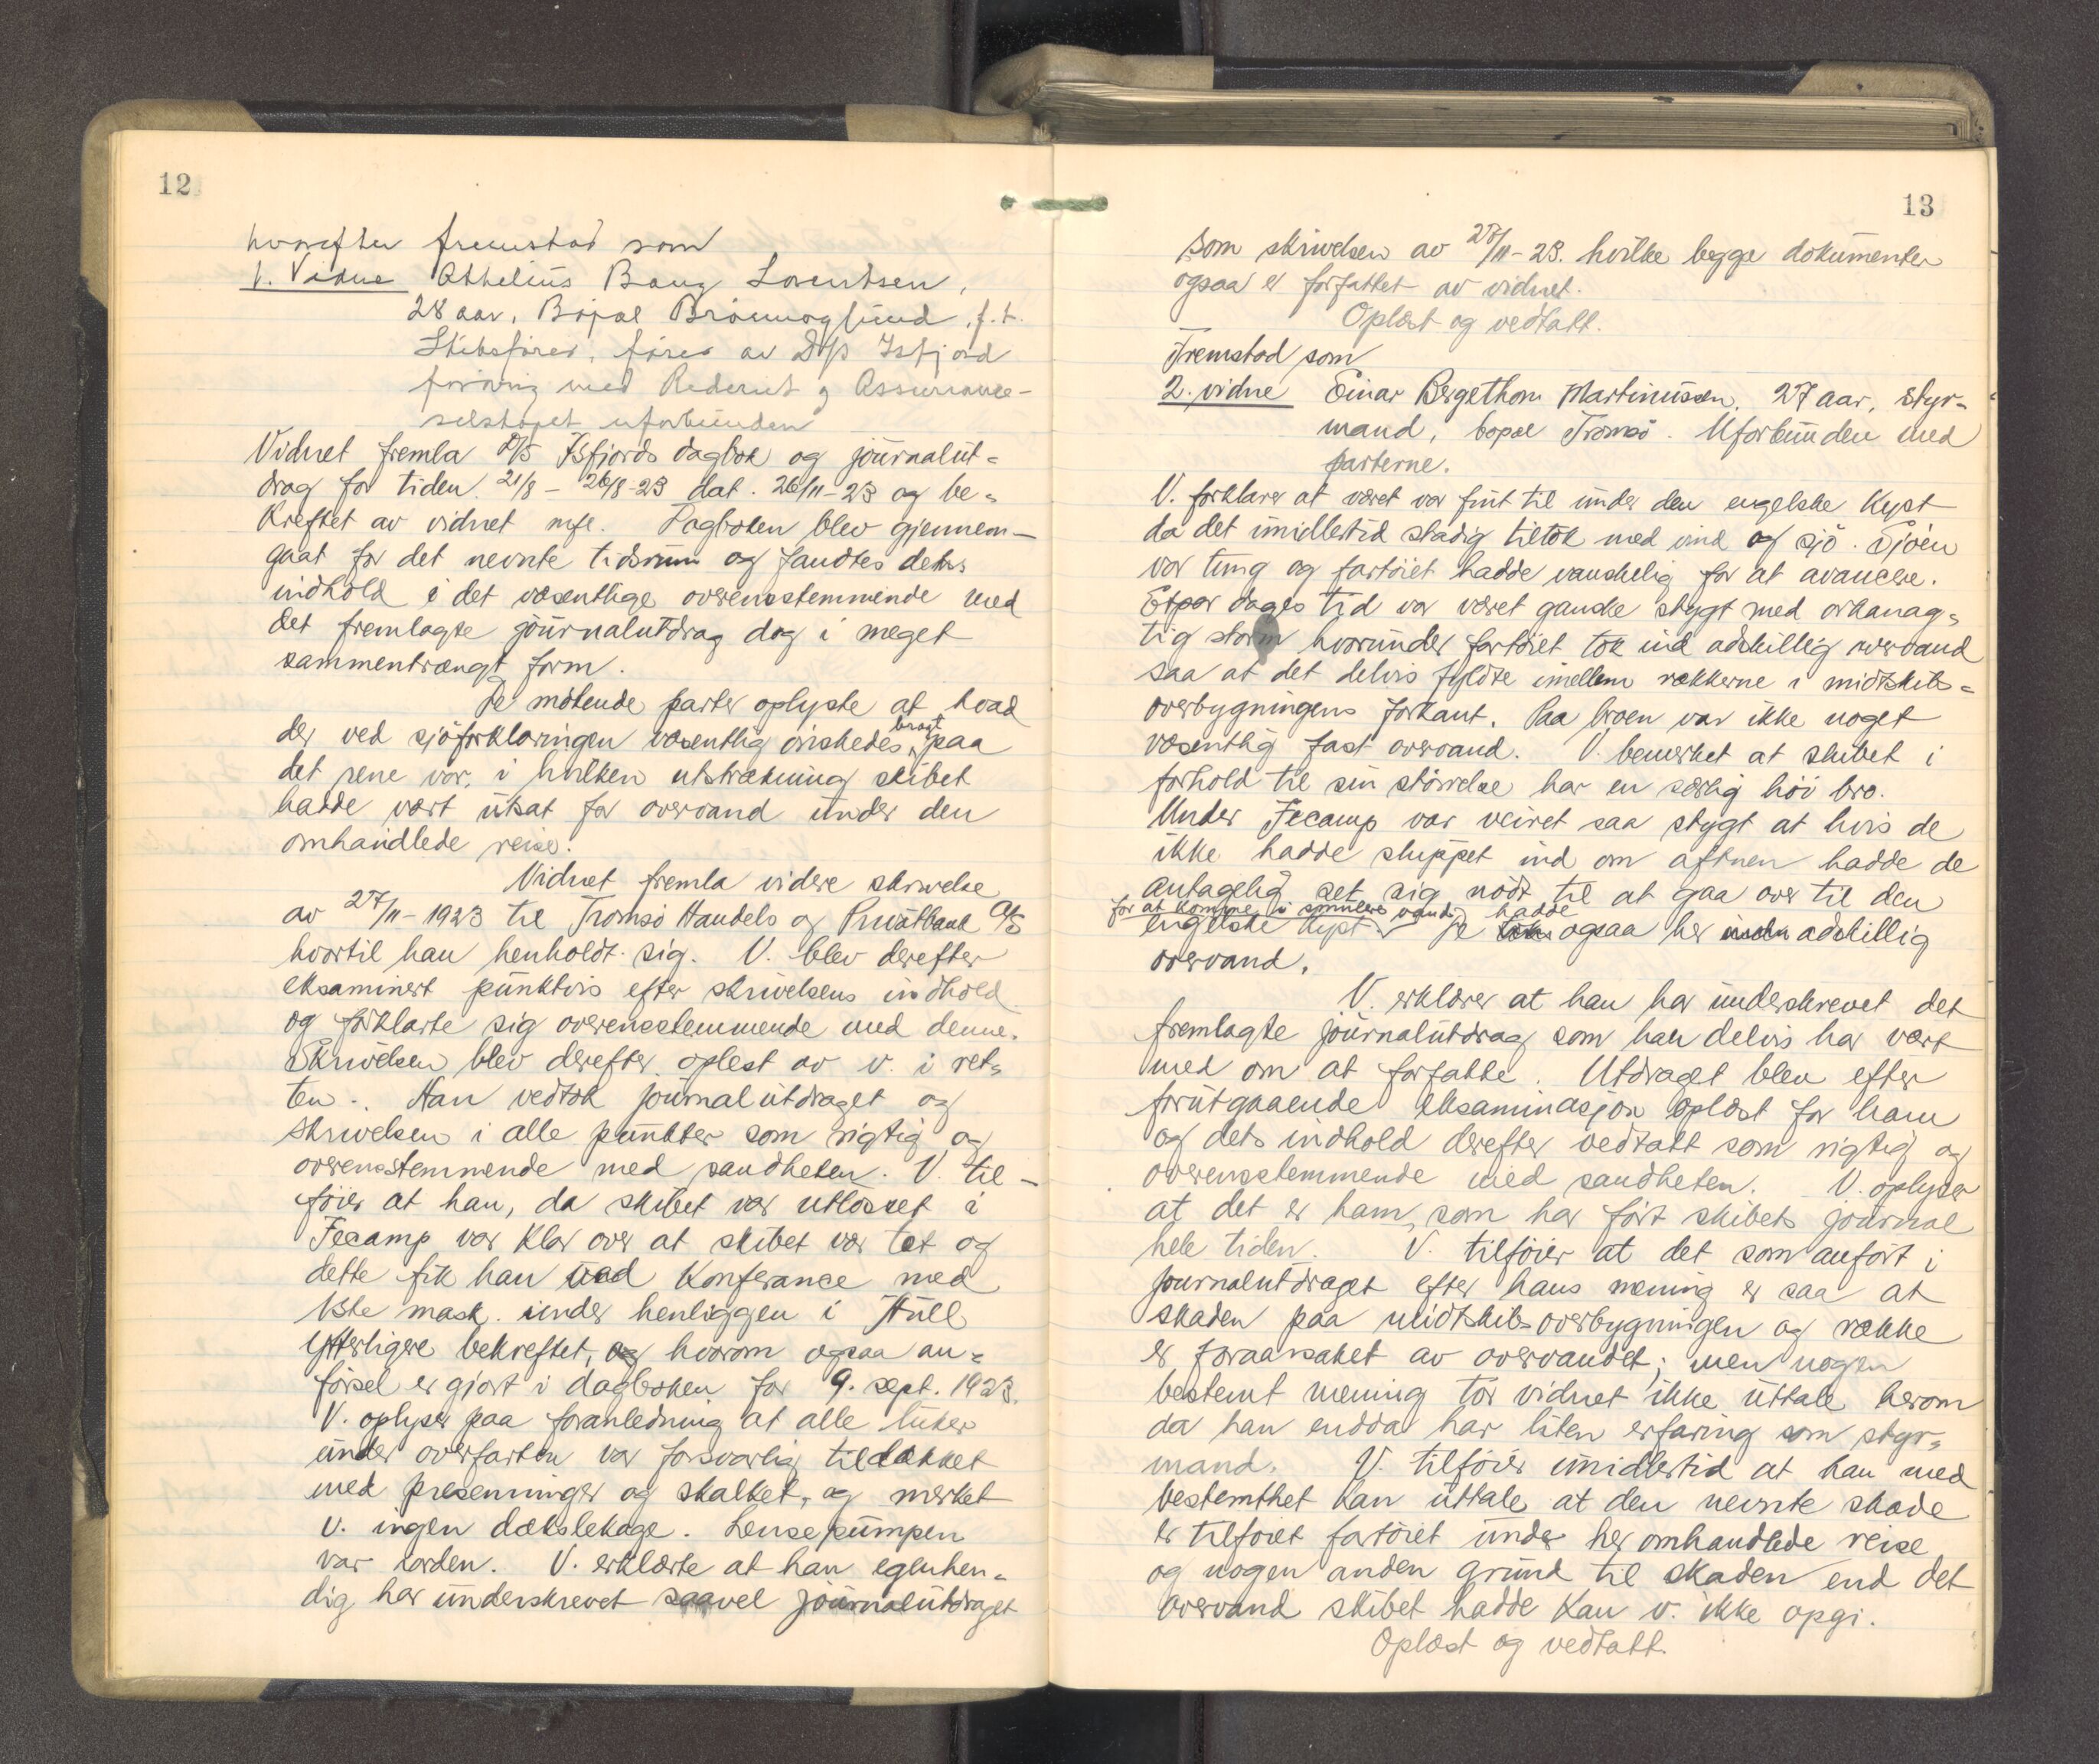 12
hvorefter fremstod som
1. Vidne Athelius Bang Lorentsen,
28 aar, Bopæl Brönnöysund, f.t.
Skibsförer, förer av D/s Isfjord
forövrig med Rederiet og Assurance-
selskapet uforbunden
Vidnet fremla D/S Isfjords dagbok og journalut-
drag for tiden 21/8 - 26/8-23 dat. 26/11-23 og be-
kreftet av vidnet mfl. Dagboken blev gjennem-
gaat for det nevnte tidsrum og fandtes dets
indhold i det væsentlige overensstemmende med
det fremlagte journalutdrag dog i meget
sammentrængt form.
De mötende parter oplyste at hvad
der ved sjöforklaringen væsentlig önskedes bragt paa
det rene var, i hvilken utstrækning skibet
hadde vært utsat for overvand under den
omhandlede reise.
Vidnet fremla videre skrivelse
av 27/11-1923 til Tromsö Handels og Privatbank A/S
hvortil han henholdt sig. V. blev derefter
eksaminert punktvis efter skrivelsens indhold
og forklarte sig overensstemmende med denne.
Skrivelsen blev derefter oplest av v. i ret-
ten. Han vedtok journalutdraget og
skrivelsen i alle punkter som rigtig og
overensstemmende med sandheten. V. til-
föier at han, da skibet var utlosset i
Fecamp var klar over at skibet var tæt og
dette fik han ved konferance med
1ste mask. under henliggen i Hull
ytterligere bekreftet, og hvorom ogsaa an-
försel er gjort i dagboken for 9. sept. 1923.
V. oplyser paa foranledning at alle luker
under overfarten var forsvarlig tildækket
med presenninger og skalket, og merket
v. ingen dækslekage. Lensepumpen
var iorden. V. erklærte at han egenhen-
dig har underskrevet saavel journalutdraget
13
som skrivelsen av 27/11-23. hvilke begge dokumenter
ogsaa er forfattet av vidnet.
Oplæst og vedtatt.
Fremstod som
2. vidne Einar Bergethon Martinussen, 27 aar, styr-
mand, bopæl Tromsö. Uforbunden med
parterne.
V. forklarer at været var fint til under den engelske kyst
da det imidlertid stadig tiltok med vind og sjö. Sjöen
var tung og fartöiet hadde vanskelig for at avancere.
Etpar dages tid var været ganske stygt med orkanag-
tig storm hvorunder fartöiet tok ind adskillig overvand
saa at det delvis fyldte imellem rækkerne i midtskibs-
overbygningens forkant. Paa broen var ikke noget
væsentlig fast overvand. V. bemerket at skibet i
forhold til sin störrelse har en særlig höi bro.
Under Fecamp var veiret saa stygt at hvis de
ikke hadde sluppet ind om aftnen hadde de
antagelig set sig nödt til at gaa over til den
engelske kyst for at komme i smulere vand. De hadde ogsaa her adskillig
overvand.
V. erklærer at han har underskrevet det
fremlagte journalutdrag som han delvis har vært
med om at forfatte. Utdraget blev efter
forutgaaende eksaminasjon oplæst for ham
og dets indhold derefter vedtatt som rigtig og
overensstemmende med sandheten. V. oplyser
at det er ham, som har fört skibets journal
hele tiden. V. tilföier at det som anfört i
journalutdraget efter hans mening er saa at
skaden paa midtskibsoverbygningen og række
er foraarsaket av overvandet; men nogen
bestemt mening tör vidnet ikke uttale herom
da han endda har liten erfaring som styr-
mand. V. tilföier imidlertid at han med
bestemthet kan uttale at den nevnte skade
er tilföiet fartöiet under her omhandlede reise
og nogen anden grund til skaden end det
overvand skibet hadde kan v. ikke opgi.
Oplæst og vedtatt.